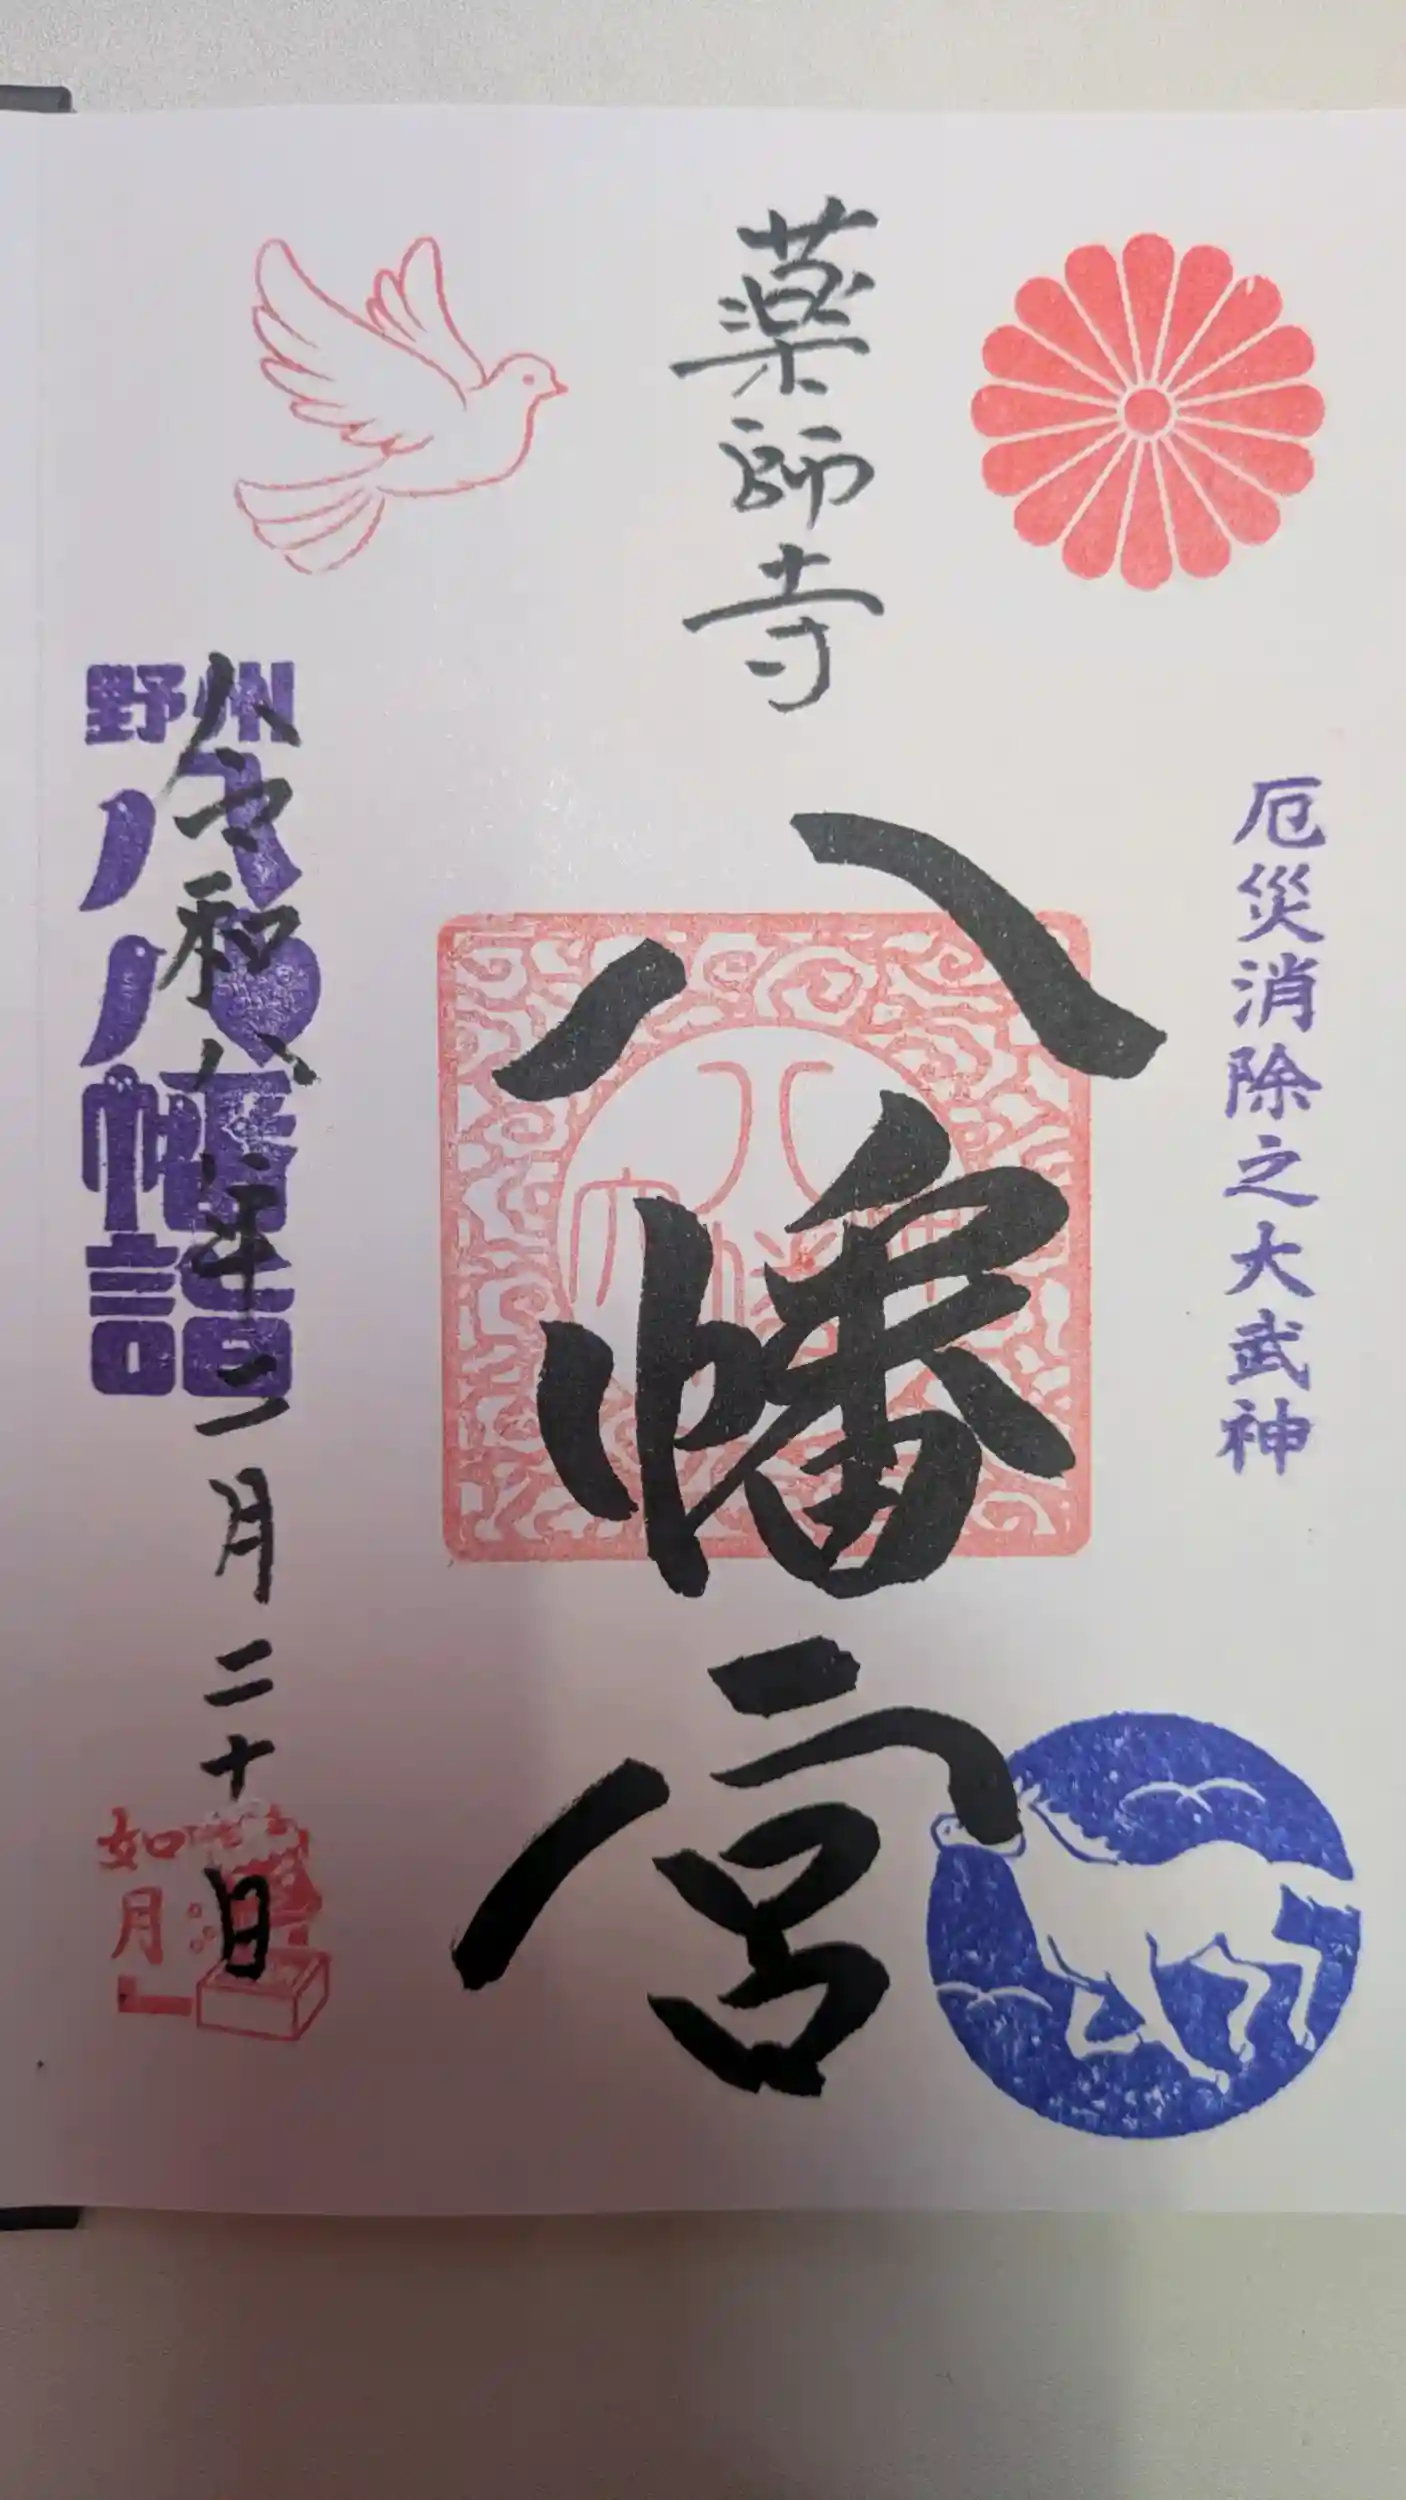 厄災消除之大武神
薬師寺
八幡宮
野州
八八幡詣
令和八年二月二十日
如月